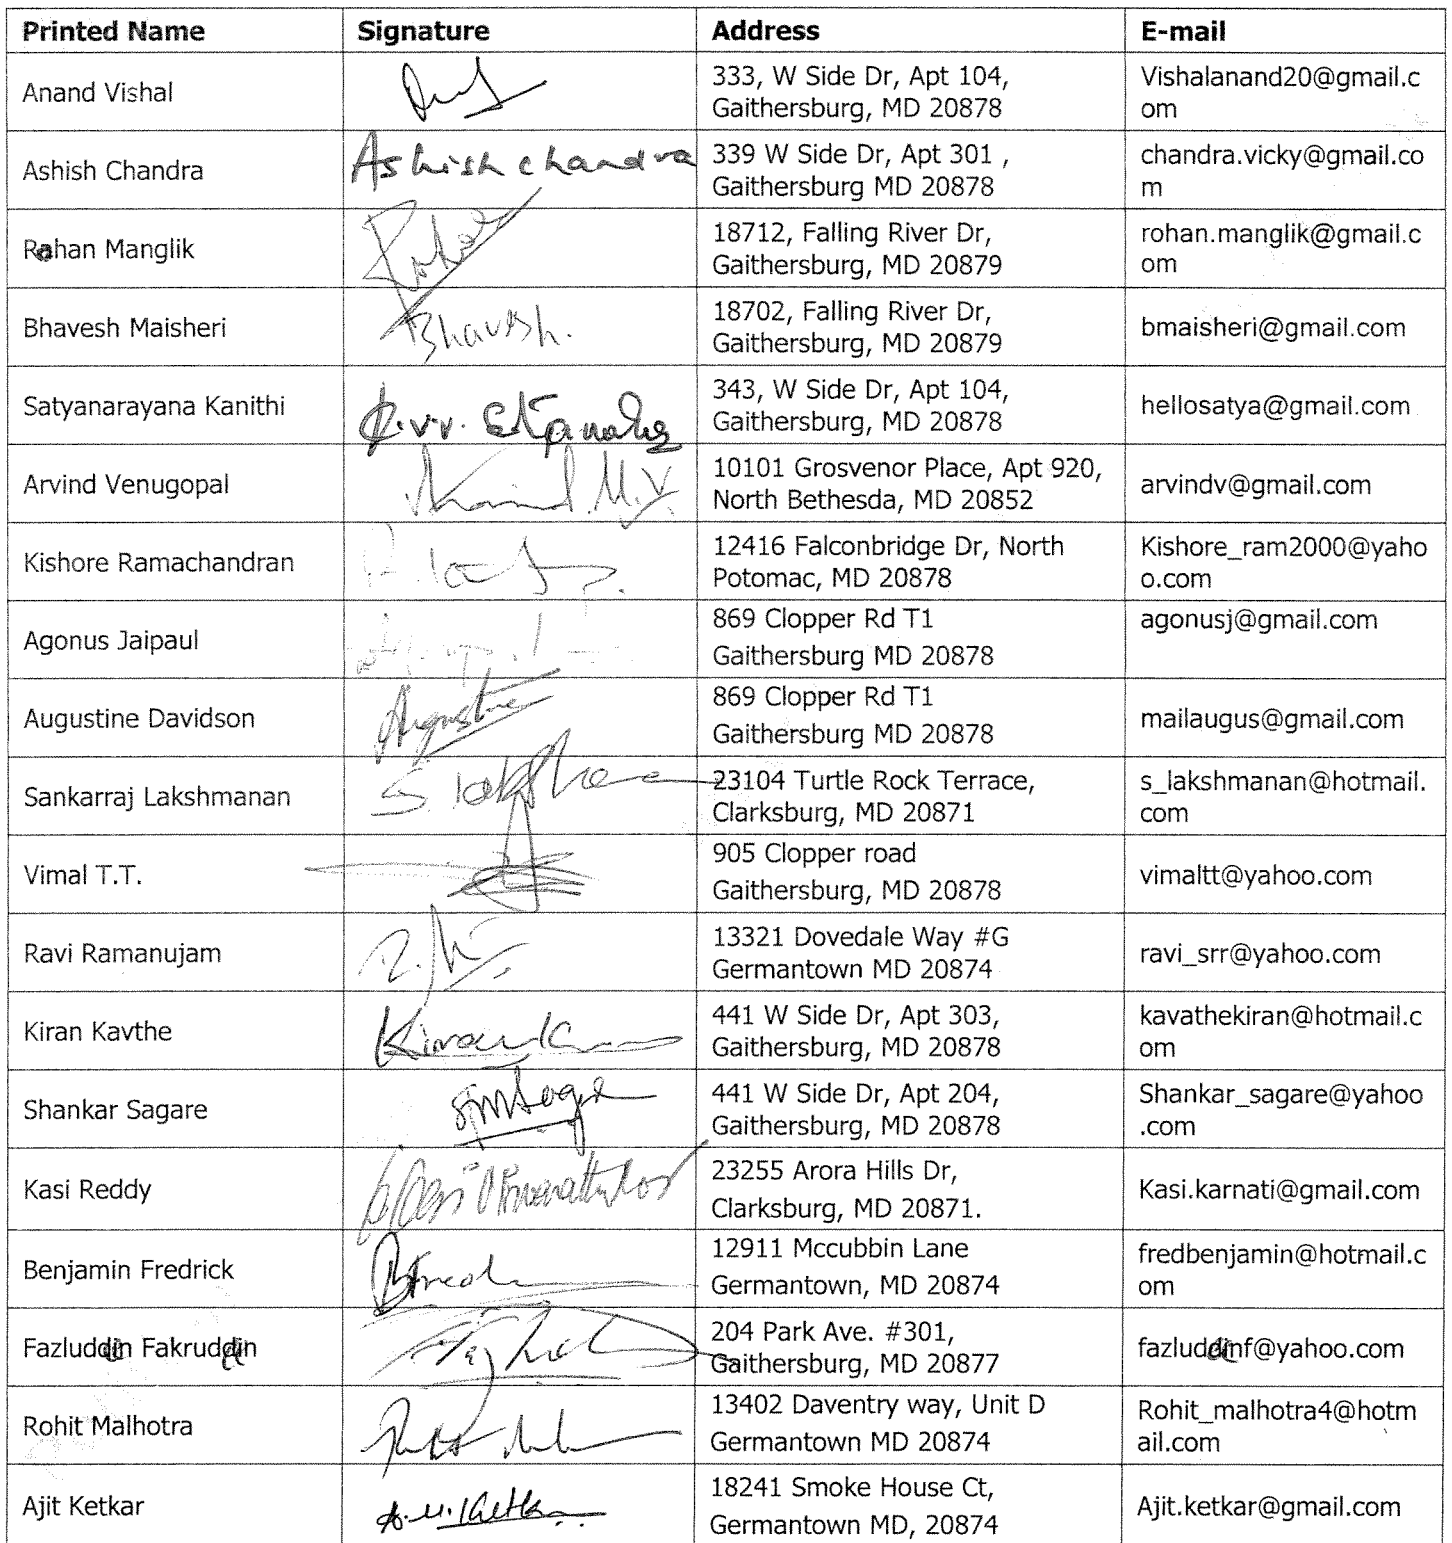 Printed Name Signature Address E-mail
Anand Vishal
333, W Side Dr, Apt 104,
Gaithersburg, MD 20878
Vishalanand20@gmail.c
om
Ashish Chandra
Ashish chandra
339 W Side Dr, Apt 301 ,
Gaithersburg MD 20878
chandra.vicky@gmail.co
m
Rohan Manglik
Rohan
18712, Falling River Dr,
Gaithersburg, MD 20879
rohan.manglik@gmail.c
om
Bhavesh Maisheri
Bhavesh.
18702, Falling River Dr,
Gaithersburg, MD 20879
bmaisheri@gmail.com
Satyanarayana Kanithi
K.v.v.
343, W Side Dr, Apt 104,
Gaithersburg, MD 20878
hellosatya@gmail.com
Arvind Venugopal
10101 Grosvenor Place, Apt 920,
North Bethesda, MD 20852
arvindv@gmail.com
Kishore Ramachandran
12416 Falconbridge Dr, North
Potomac, MD 20878
Kishore_ram2000@yaho
o.com
Agonus Jaipaul
869 Clopper Rd T1
Gaithersburg MD 20878
agonusj@gmail.com
Augustine Davidson
Augustine
869 Clopper Rd T1
Gaithersburg MD 20878
mailaugus@gmail.com
Sankarraj Lakshmanan
23104 Turtle Rock Terrace,
Clarksburg, MD 20871
s_lakshmanan@hotmail.
com
Vimal T.T.
905 Clopper road
Gaithersburg, MD 20878
vimaltt@yahoo.com
Ravi Ramanujam
13321 Dovedale Way #G
Germantown MD 20874
ravi_srr@yahoo.com
Kiran Kavthe
441 W Side Dr, Apt 303,
Gaithersburg, MD 20878
kavathekiran@hotmail.c
om
Shankar Sagare
441 W Side Dr, Apt 204,
Gaithersburg, MD 20878
Shankar_sagare@yahoo
.com
Kasi Reddy
23255 Arora Hills Dr,
Clarksburg, MD 20871.
Kasi.karnati@gmail.com
Benjamin Fredrick
12911 Mccubbin Lane
Germantown, MD 20874
fredbenjamin@hotmail.c
om
Fazluddin Fakruddin
204 Park Ave. #301,
Gaithersburg, MD 20877
fazluddinf@yahoo.com
Rohit Malhotra
13402 Daventry way, Unit D
Germantown MD 20874
Rohit_malhotra4@hotm
ail.com
Ajit Ketkar
A.M.Ketkar
18241 Smoke House Ct,
Germantown MD, 20874
Ajit.ketkar@gmail.com